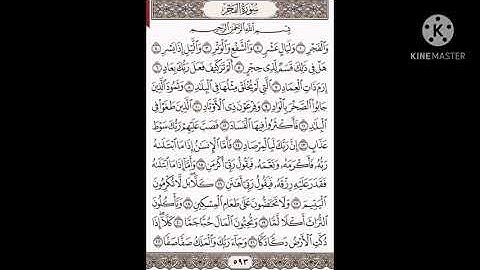 سُورَةُ الفَجْرِ
بِسْمِ اللَّهِ الرَّحْمَٰنِ الرَّحِيمِ
وَالْفَجْرِ ١ وَلَيَالٍ عَشْرٍ ٢ وَالشَّفْعِ وَالْوَتْرِ ٣ وَاللَّيْلِ إِذَا يَسْرِ ٤
هَلْ فِي ذَٰلِكَ قَسَمٌ لِّذِي حِجْرٍ ٥ أَلَمْ تَرَ كَيْفَ فَعَلَ رَبُّكَ بِعَادٍ ٦
إِرَمَ ذَاتِ الْعِمَادِ ٧ الَّتِي لَمْ يُخْلَقْ مِثْلُهَا فِي الْبِلَادِ ٨ وَثَمُودَ الَّذِينَ
جَابُوا الصَّخْرَ بِالْوَادِ ٩ وَفِرْعَوْنَ ذِي الْأَوْتَادِ ١٠ الَّذِينَ طَغَوْا فِي
الْبِلَادِ ١١ فَأَكْثَرُوا فِيهَا الْفَسَادَ ١٢ فَصَبَّ عَلَيْهِمْ رَبُّكَ سَوْطَ
عَذَابٍ ١٣ إِنَّ رَبَّكَ لَبِالْمِرْصَادِ ١٤ فَأَمَّا الْإِنسَانُ إِذَا مَا ابْتَلَاهُ
رَبُّهُ فَأَكْرَمَهُ وَنَعَّمَهُ فَيَقُولُ رَبِّي أَكْرَمَنِ ١٥ وَأَمَّا إِذَا مَا ابْتَلَاهُ
فَقَدَرَ عَلَيْهِ رِزْقَهُ فَيَقُولُ رَبِّي أَهَانَنِ ١٦ كَلَّا بَل لَّا تُكْرِمُونَ
الْيَتِيمَ ١٧ وَلَا تَحَاضُّونَ عَلَىٰ طَعَامِ الْمِسْكِينِ ١٨ وَتَأْكُلُونَ
التُّرَاثَ أَكْلًا لَّمًّا ١٩ وَتُحِبُّونَ الْمَالَ حُبًّا جَمًّا ٢٠ كَلَّا إِذَا
دُكَّتِ الْأَرْضُ دَكًّا دَكًّا ٢١ وَجَاءَ رَبُّكَ وَالْمَلَكُ صَفًّا صَفًّا ٢٢
٥٩٣
KINEMASTER